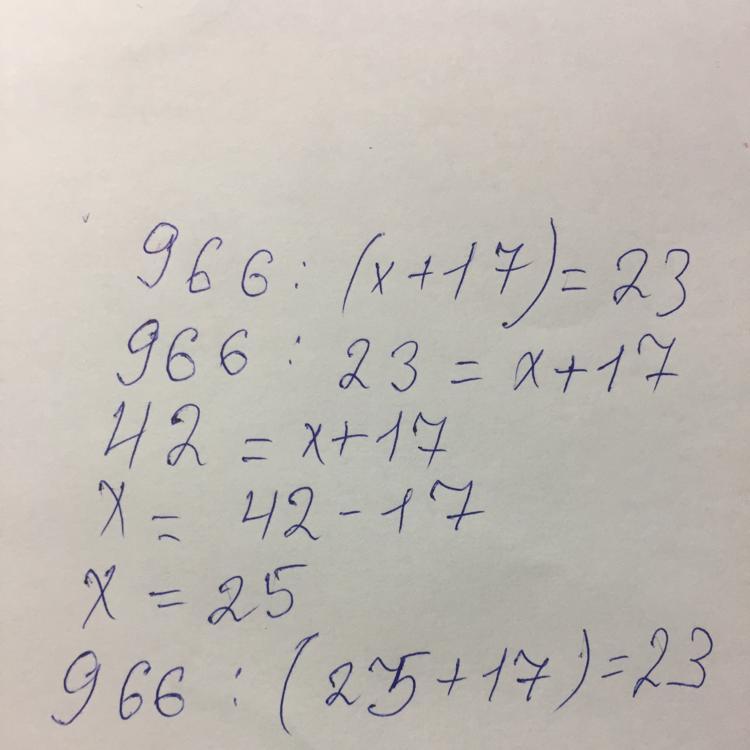 966 : (x+17) = 23
966 : 23 = x+17
42 = x+17
x = 42 - 17
x = 25
966 : (25+17) = 23